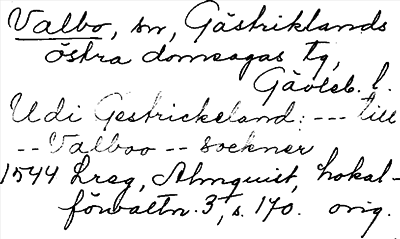 Valbo, sn, Gästriklands
östra domsagas tg,
Gävleb. l.
Udi Gestrickeland: --- till
-- Valboo -- sockner
1544 Lreg, Almquist, Lokal-
förvaltn. 3, s. 170. orig.